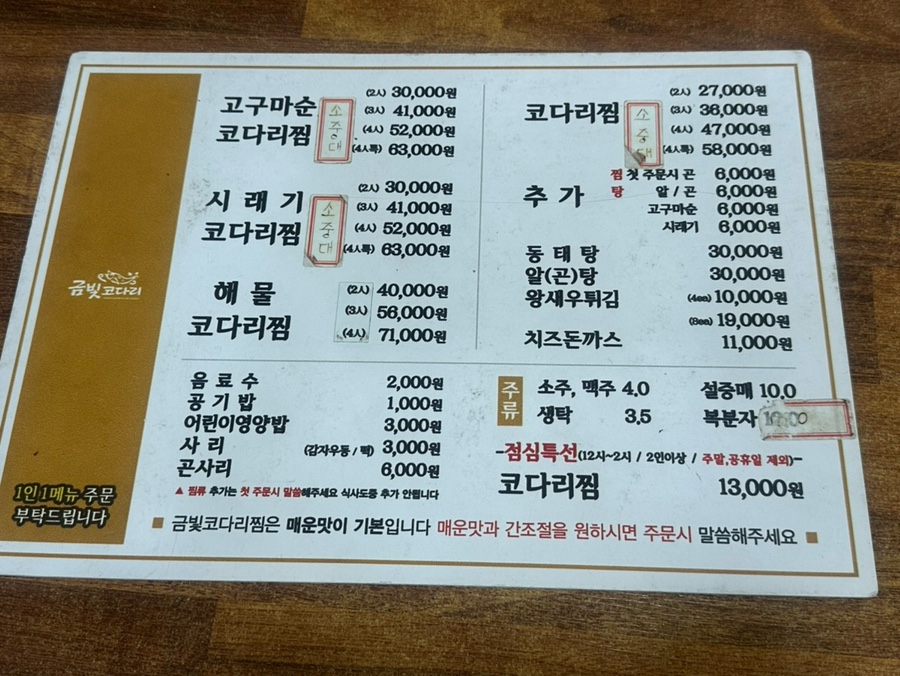 금빛코다리
1인 1메뉴 주문
부탁드립니다
고구마순
코다리찜
소
중
대
(2人) 30,000원
(3人) 41,000원
(4人) 52,000원
(4人특) 63,000원
시래기
코다리찜
소
중
대
(2人) 30,000원
(3人) 41,000원
(4人) 52,000원
(4人특) 63,000원
해물
코다리찜
(2人) 40,000원
(3人) 56,000원
(4人) 71,000원
코다리찜
소
중
대
(2人) 27,000원
(3人) 36,000원
(4人) 47,000원
(4人특) 58,000원
추가
찜 첫 주문시 곤 6,000원
탕 알 / 곤 6,000원
고구마순 6,000원
시래기 6,000원
동태탕 30,000원
알(곤)탕 30,000원
왕새우튀김 (4ea) 10,000원
(8ea) 19,000원
치즈돈까스 11,000원
음료수 2,000원
공기밥 1,000원
어린이영양밥 3,000원
사리 (감자우동 / 떡) 3,000원
곤사리 6,000원
▲ 찜류 추가는 첫 주문시 말씀해주세요 식사도중 추가 안됩니다
주류
소주, 맥주 4.0 설중매 10.0
생탁 3.5 복분자
-점심특선(12시~2시 / 2인이상 / 주말,공휴일 제외)-
코다리찜 13,000원
■ 금빛코다리찜은 매운맛이 기본입니다 매운맛과 간조절을 원하시면 주문시 말씀해주세요 ■